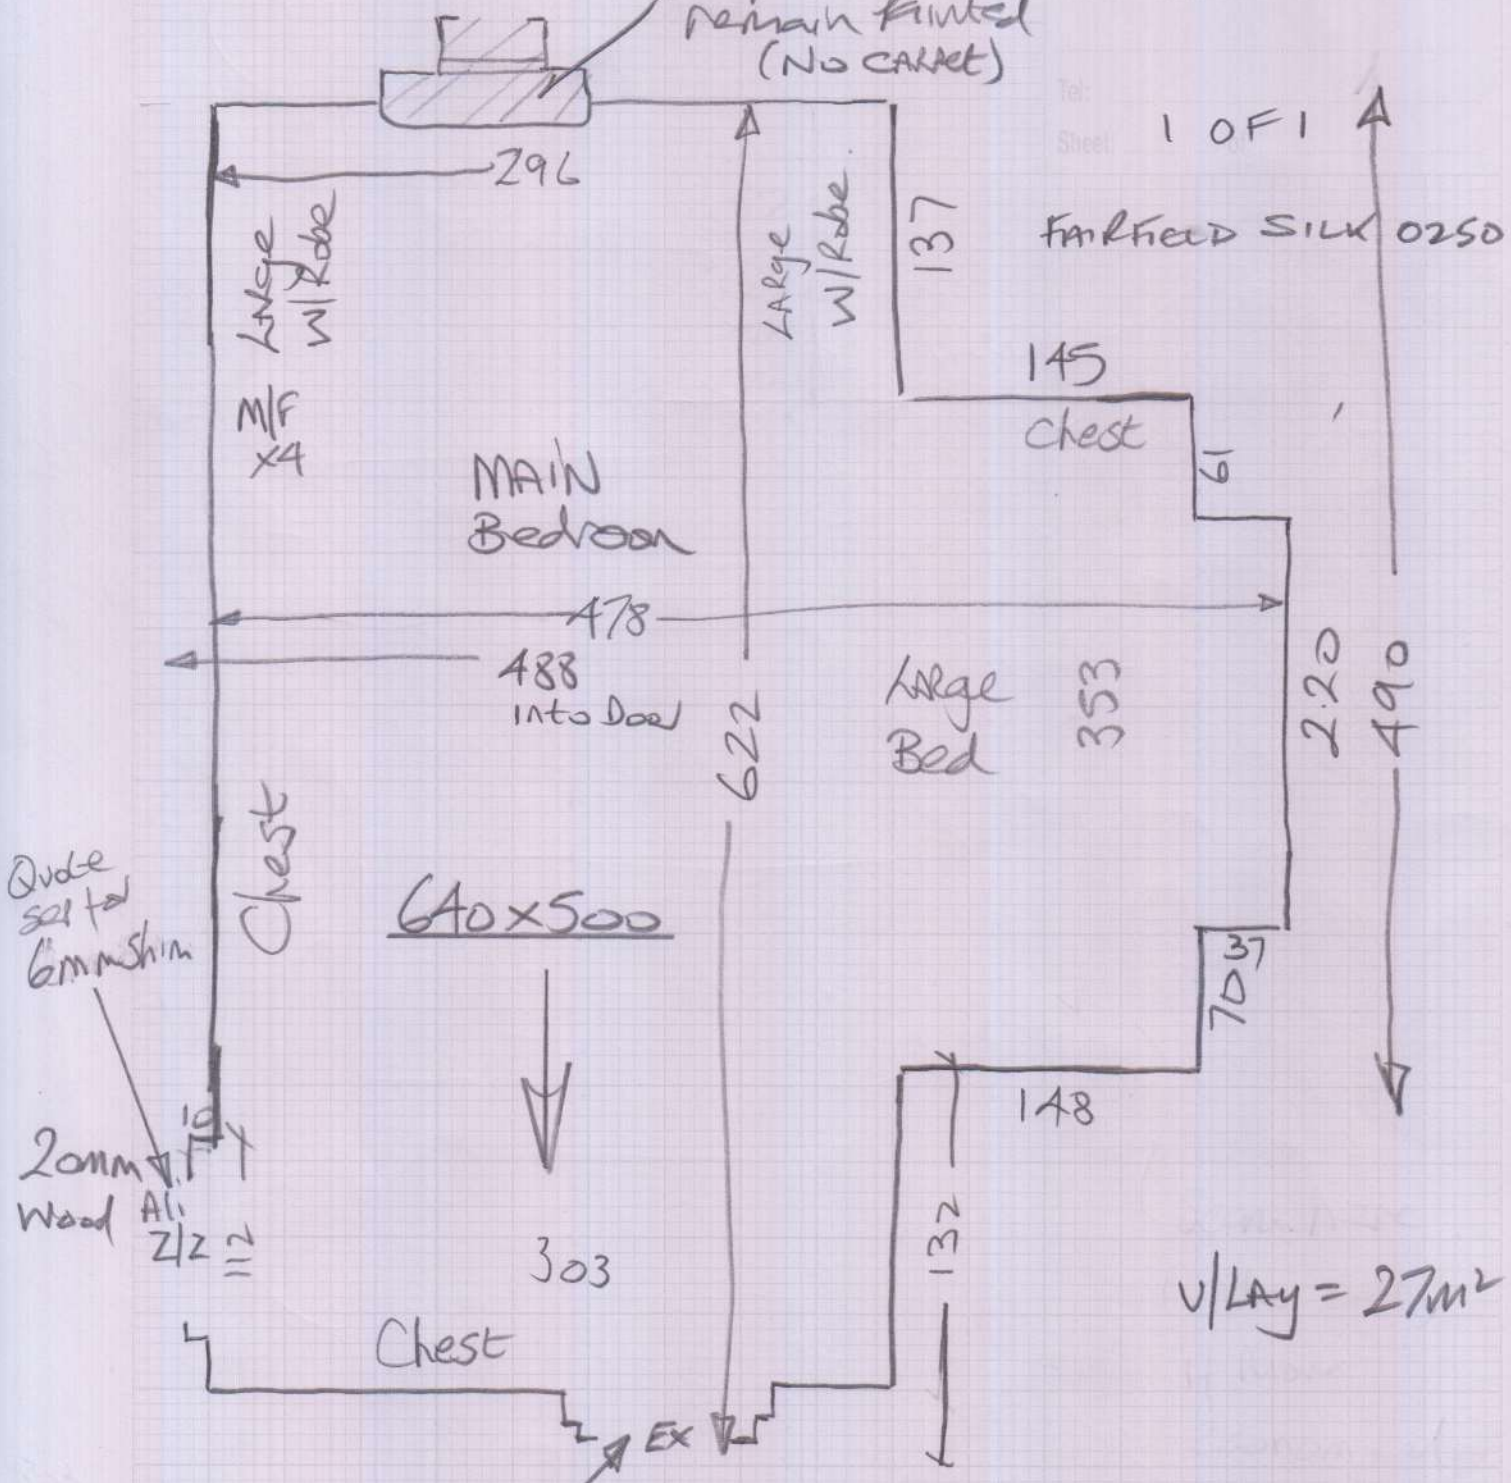 remain Painted
(NO CARPet)
Tel:
Sheet: 1 OF 1
FAIRFIELD SILK 0250
296
LARge
W/Robe
LARge
W/Robe
137
145
Chest
61
M/F
X4
MAIN
Bedroom
478
488
into Door
LARge
Bed
353
2.20
490
622
Chest
640x500
Quote
6mm Shim
37
70
148
10
20mm
Wood
Ali
Z/Z
112
303
132
U/LAY = 27m²
Chest
EX